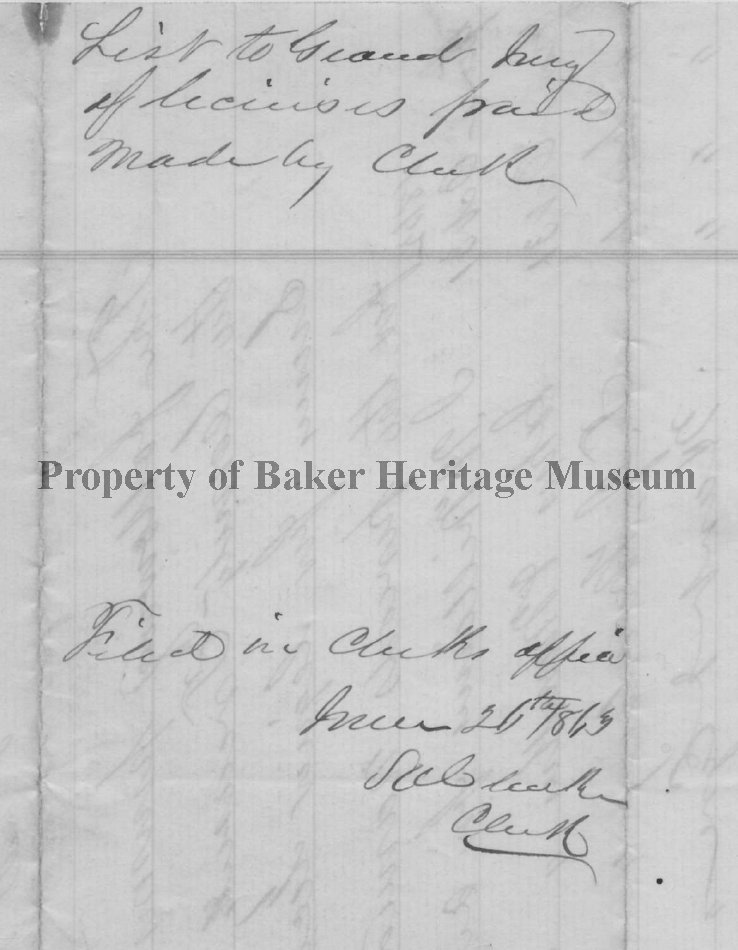 List to Grand Jury
of licinses paid
Made by Clerk
Property of Baker Heritage Museum
Filed in Clerks office
June 26th 1863
S A Clarke
Clerk